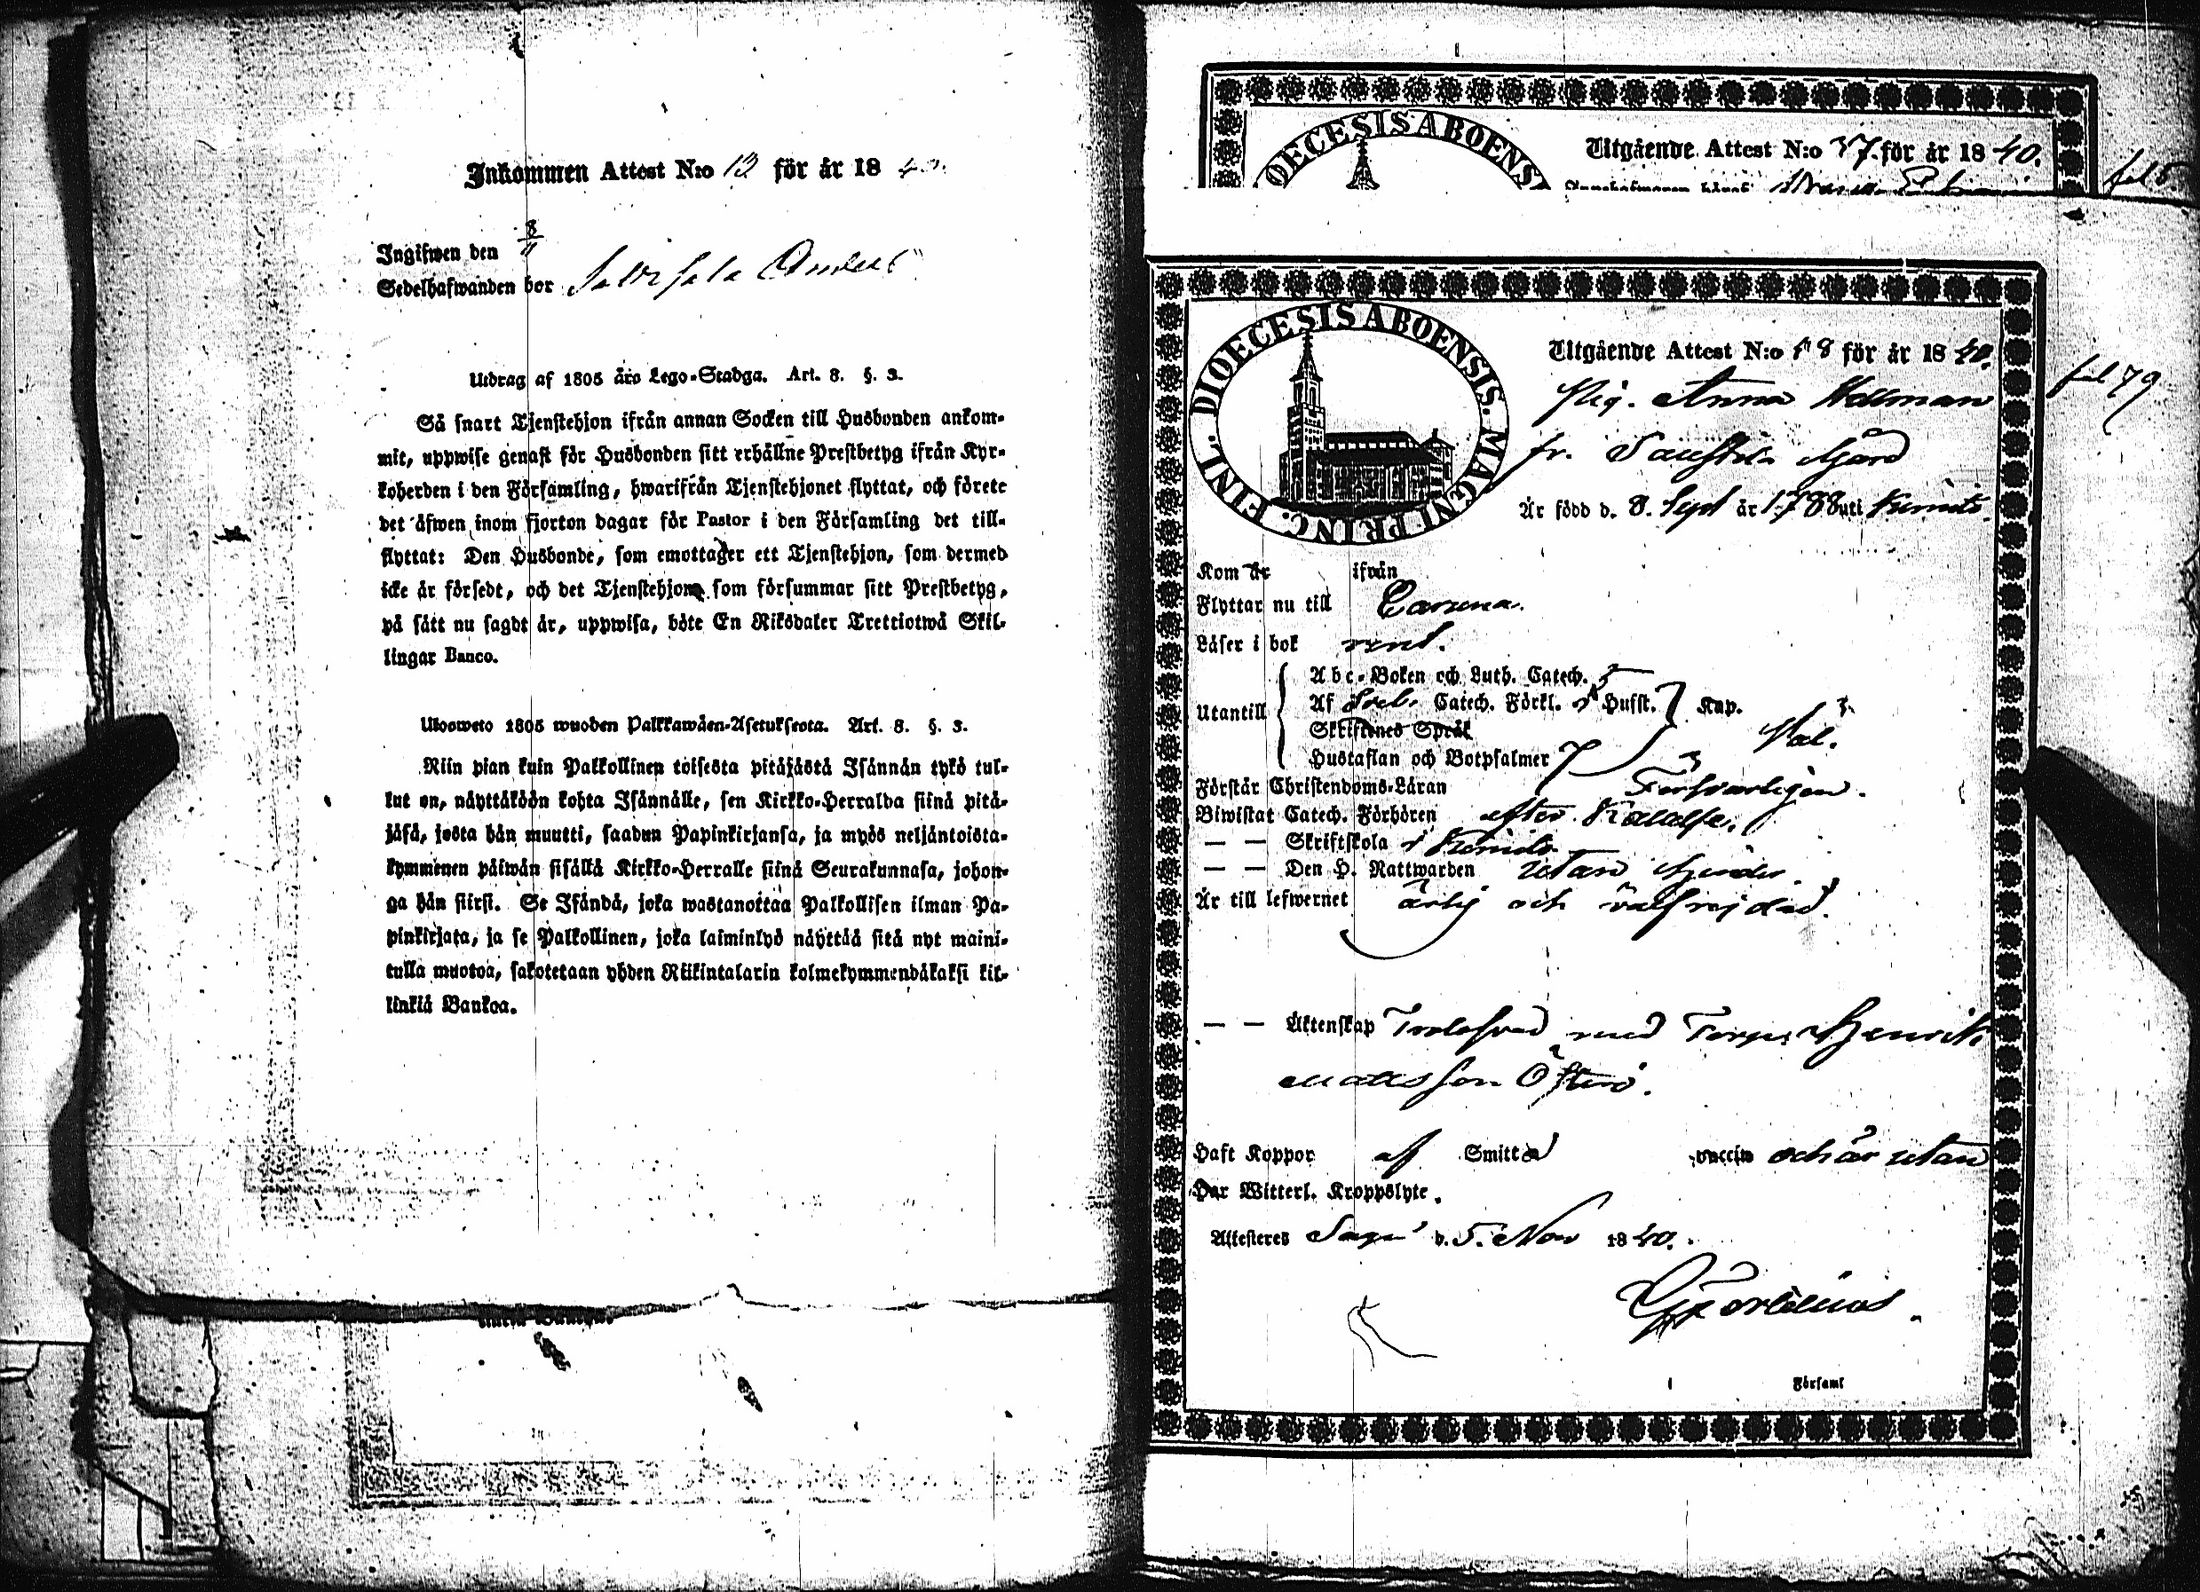 Inkommen Attest N:o 13 för år 18 40.
Ingifwen den 8/11
Sedelhafwanden bor Anders
Utdrag af 1805 års Lego-Stadga. Art. 8. §. 3.
Så snart Tjenstehjon ifrån annan Socken till Husbonden ankom-
mit, uppwise genast för Husbonden sitt erhållne Prestbetyg ifrån Kyr-
koherden i den Församling, hwarifrån Tjenstehjonet flyttat, och förete
det äfwen inom fjorton dagar för Pastor i den Församling det till-
flyttat: Den Husbonde, som emottager ett Tjenstehjon, som dermed
icke är försedt, och det Tjenstehjon, som försummar sitt Prestbetyg,
på sätt nu sagdt är, uppwisa, böte En Riksdaler Trettiotwå Skil-
lingar Banco.
Ulosweto 1805 wuoden Palkkawäen-Asetuksesta. Art. 8. §. 3.
Niin pian kuin Palkollinen toisesta pitäjästä Isännän tykö tul-
lut on, näyttäköön kohta Isännälle, sen Kirkko-Herralda siinä pitä-
jäsä, josta hän muutti, saadun Papinkirjansa, ja myös neljäntoista-
kymmenen päiwän sisällä Kirkko-Herralle siinä Seurakunnasa, johon-
ga hän siirsi. Se Isändä, joka wastanottaa Palkollisen ilman Pa-
pinkirjata, ja se Palkollinen, joka laiminlyö näyttää sitä nyt maini-
tulla muotoa, sakotetaan yhden Riikintalarin kolmekymmendäkaksi kil-
linkiä Bankoa.
linkiä Bankoa.
DIOECESIS ABOENS
Utgående Attest N:o 37. för år 18 40.
Innehafwaren häraf
DIOECESIS ABOENSIS. MAGNI PRINC. FINL.
Utgående Attest N:o 18 för år 18 40.
fol 79
Pig. Anna Hellman
fr. Gård
Är född d. 8. Sept år 1788 uti Kimito.
Kom år ifrån
Flyttar nu till Caruna.
Läser i bok rent.
Utantill
Abc-Boken och Luth. Catech.
Af Sveb. Catech. Förkl. Hufst. Kap.
Skriftenes Språk
Hustaflan och Botpsalmer
Väl.
Förstår Christendoms-Läran Försvarligen.
Biwistat Catech. Förhören efter Kallelse.
— — Skriftskola i Kimito
— — Den H. Nattwarden utan hinder.
Är till lefwernet ärlig och välfrejdad.
— — Äktenskap Trolofvad med Torp. Henrik
Mattsson Österö.
Haft Koppor af Smitta vaccin och är utan
Har Witterl. Kroppslyte.
Attesteres Sagu d. 5. Nov 1840.
Församl